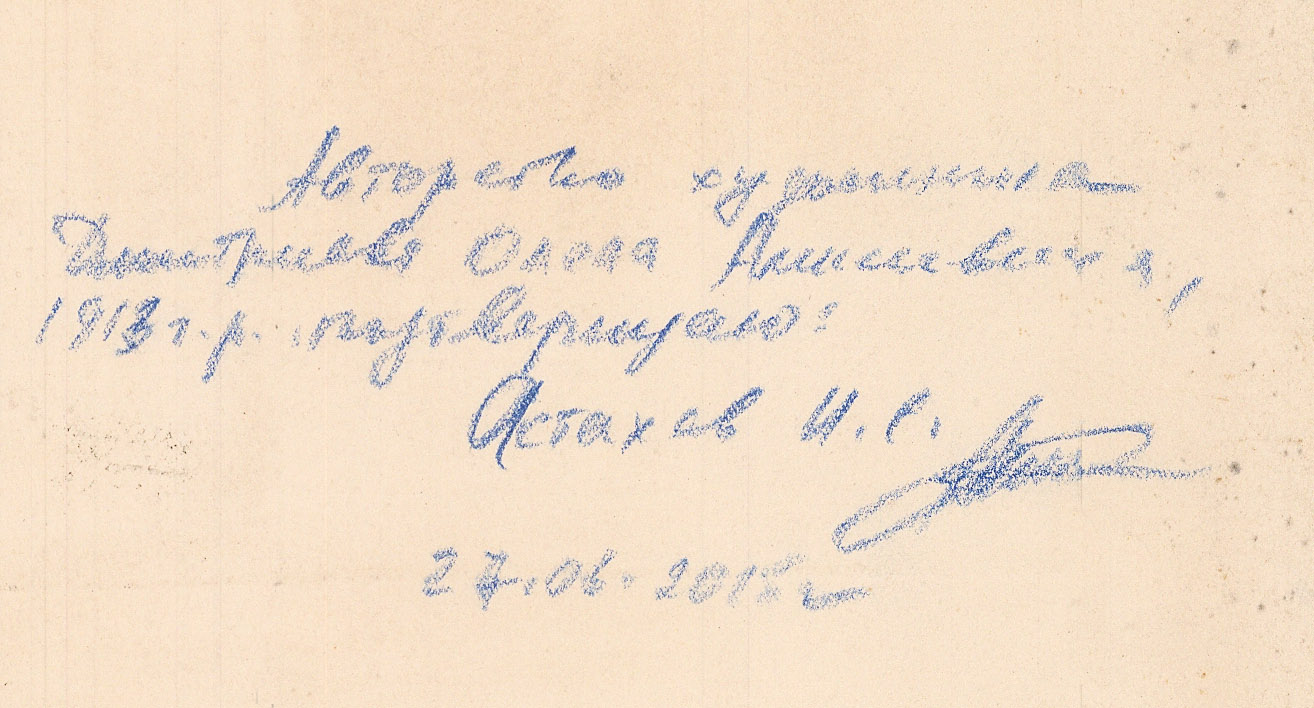 Авторство художника
Дмитриева Олега
1913 г.р. подтверждаю:
Астахов И.С.
27.06.2018 г